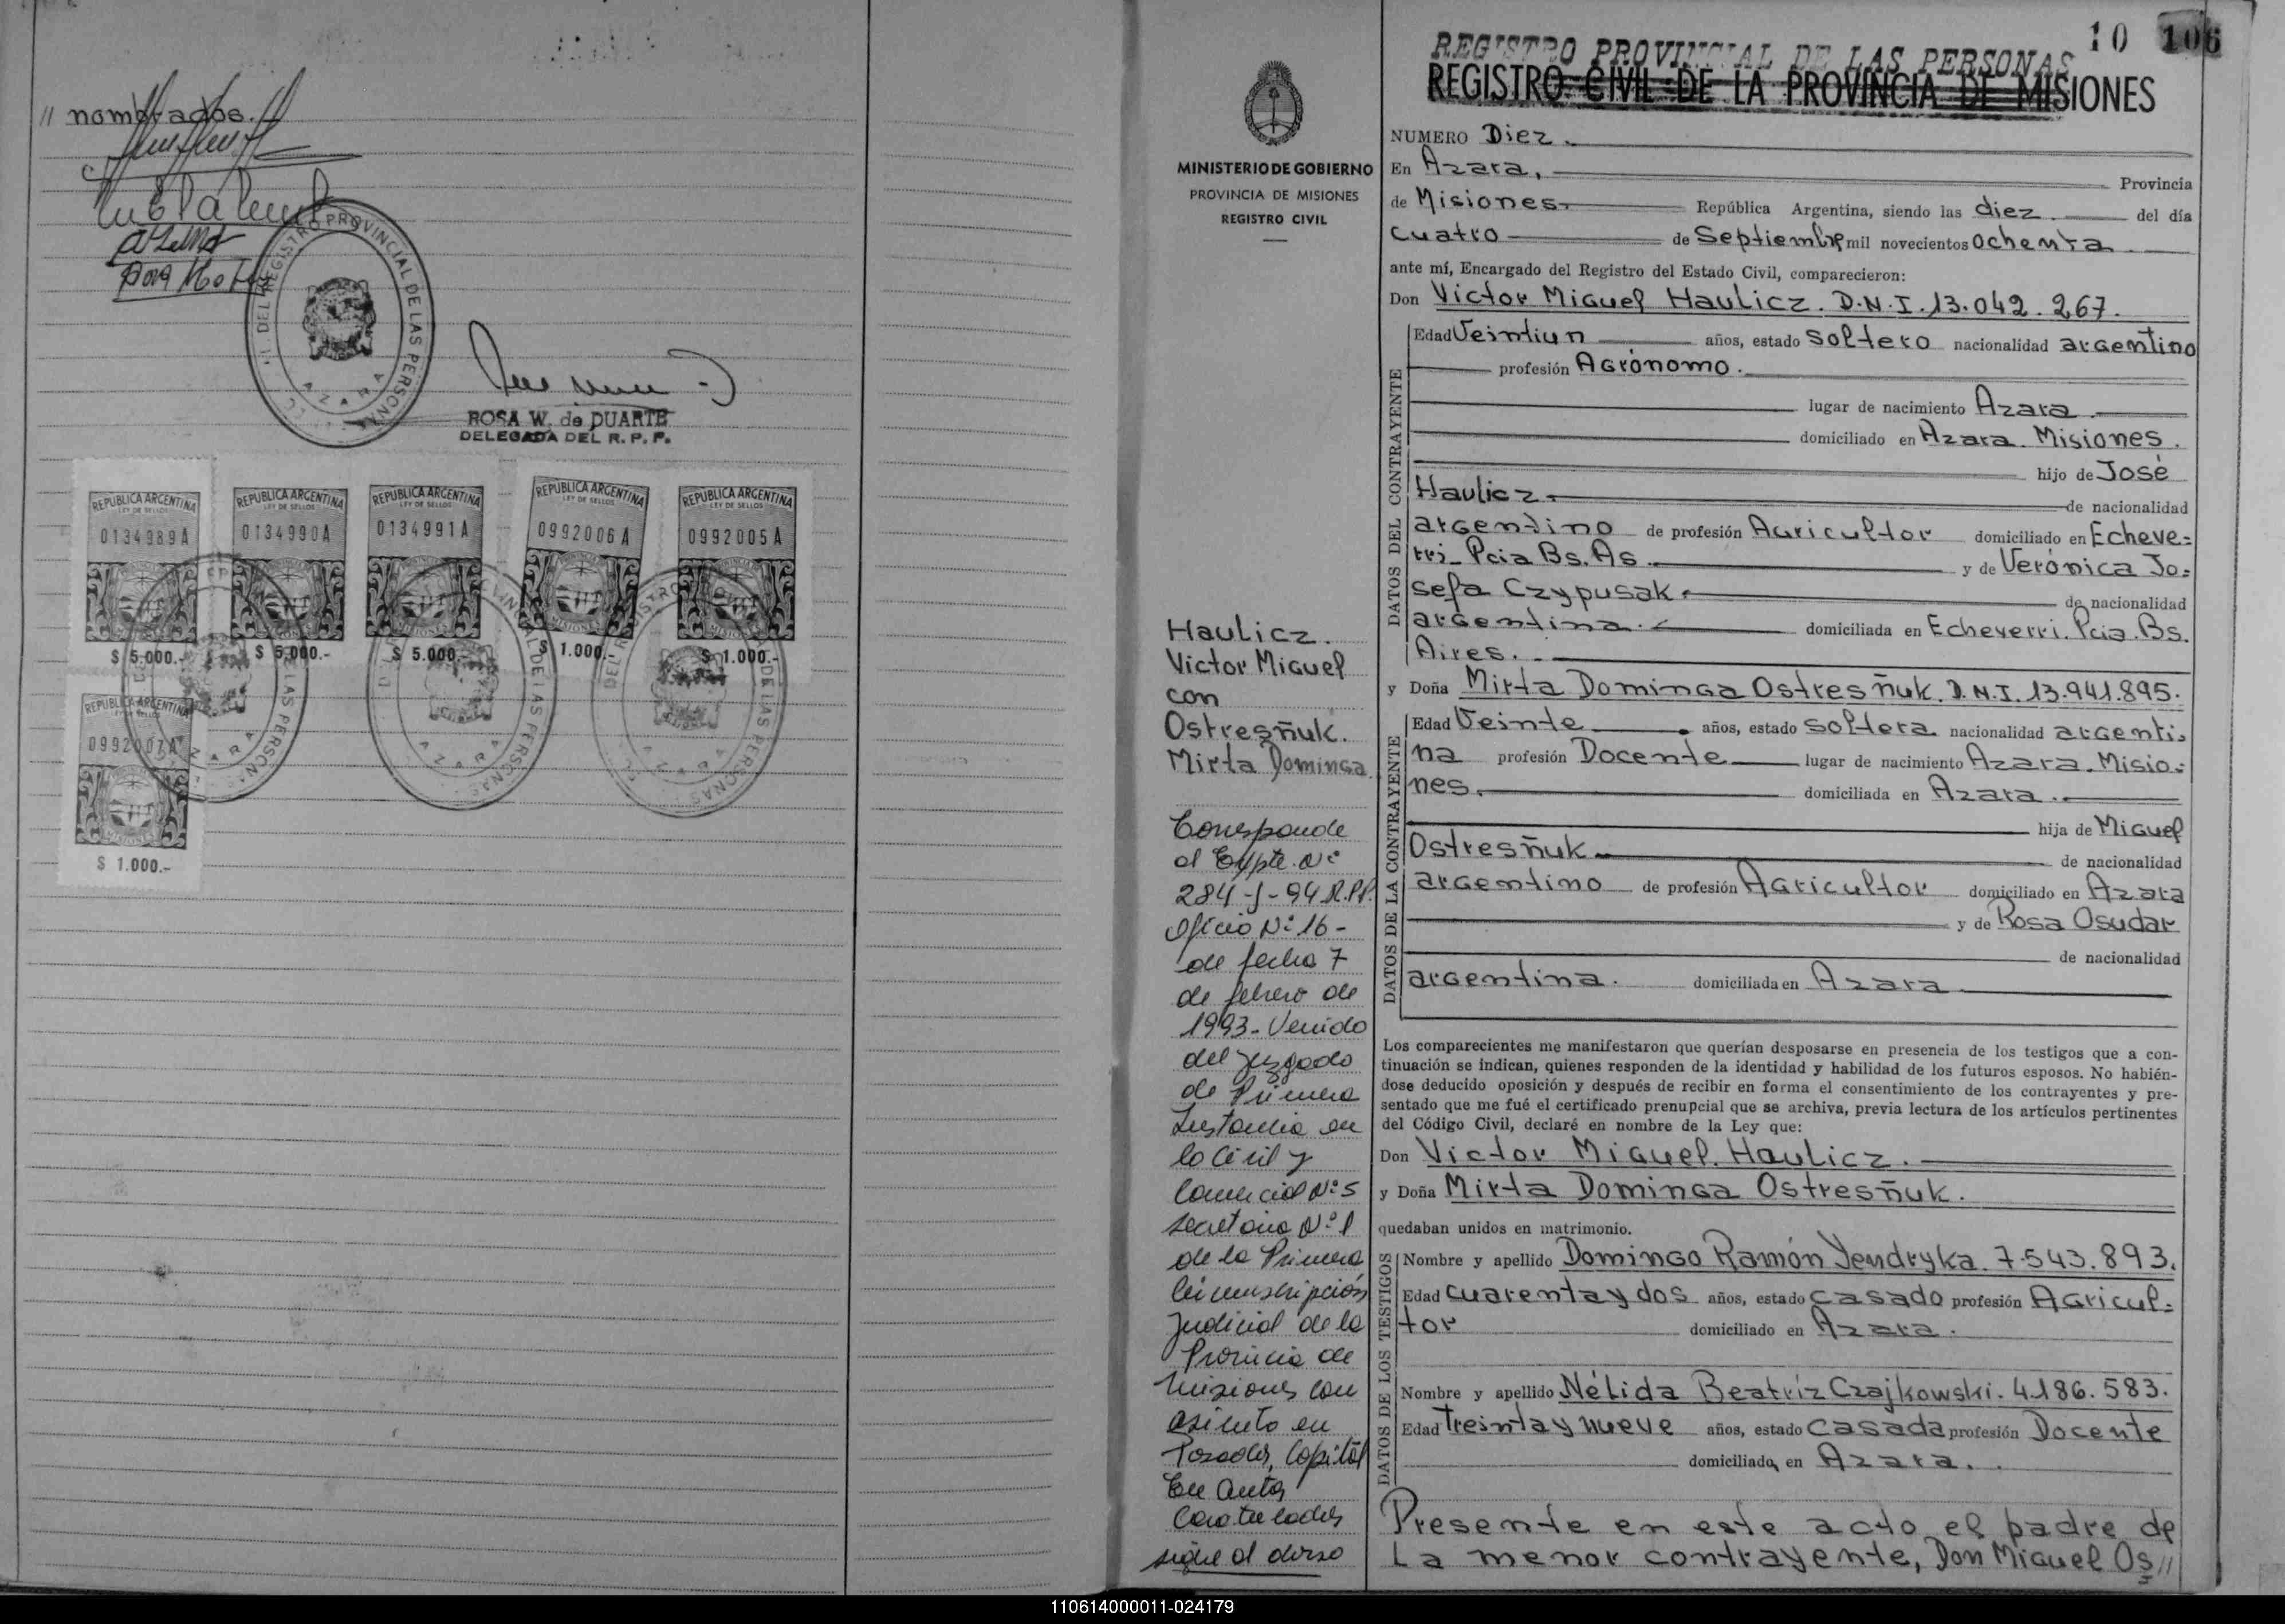 // nombrados.
REGISTRO PROVINCIAL DE LAS PERSONAS
AZARA
ROSA W. de DUARTE
DELEGADA DEL R. P. P.
REPUBLICA ARGENTINA
LEY DE SELLOS
0134989A
$ 5.000.-
REPUBLICA ARGENTINA
LEY DE SELLOS
0134990A
$ 5.000.-
REPUBLICA ARGENTINA
LEY DE SELLOS
0134991A
$ 5.000.-
REPUBLICA ARGENTINA
LEY DE SELLOS
0992006A
MISIONES
$ 1.000.-
REPUBLICA ARGENTINA
LEY DE SELLOS
0992005A
MISIONES
$ 1.000.-
REPUBLICA ARGENTINA
LEY DE SELLOS
0992007A
MISIONES
$ 1.000.-
MINISTERIO DE GOBIERNO
PROVINCIA DE MISIONES
REGISTRO CIVIL
Haulicz.
Victor Miguel
con
Ostresñuk.
Mirta Dominga
Corresponde
al Expte. Nº
284-J-94 R.P.P.
Oficio Nº 16-
de fecha 7
de febrero de
1993- Venido
del Juzgado
de Primera
Instancia en
lo Civil y
Comercial Nº 5
secretaria Nº 1
de la Primera
Circunscripción
Judicial de la
Provincia de
Misiones con
asiento en
Posadas, Capital
En autos
Caratulados
sigue al dorso
10 106
REGISTRO PROVINCIAL DE LAS PERSONAS
REGISTRO CIVIL DE LA PROVINCIA DE MISIONES
NUMERO Diez.
En Azara, Provincia
de Misiones República Argentina, siendo las diez. del día
cuatro de Septiembre mil novecientos ochenta
ante mí, Encargado del Registro del Estado Civil, comparecieron:
Don Victor Miguel Haulicz. D.N.I. 13.042.267.
DATOS DEL CONTRAYENTE
Edad Veintiun años, estado soltero nacionalidad argentino
profesión Agrónomo.
lugar de nacimiento Azara.
domiciliado en Azara. Misiones.
hijo de José
Haulicz. de nacionalidad
argentino de profesión Agricultor domiciliado en Echeve=
rri- Pcia Bs. As. y de Verónica Jo=
sefa Czypusak. de nacionalidad
argentina. domiciliada en Echeverri. Pcia. Bs.
Aires.
y Doña Mirta Dominga Ostresñuk. D.N.I. 13.941.895.
DATOS DE LA CONTRAYENTE
Edad Veinte años, estado soltera nacionalidad argenti=
na profesión Docente lugar de nacimiento Azara. Misio=
nes. domiciliada en Azara.
hija de Miguel
Ostresñuk de nacionalidad
argentino de profesión Agricultor domiciliado en Azara
y de Rosa Osudar
de nacionalidad
argentina. domiciliada en Azara
Los comparecientes me manifestaron que querían desposarse en presencia de los testigos que a con-
tinuación se indican, quienes responden de la identidad y habilidad de los futuros esposos. No habién-
dose deducido oposición y después de recibir en forma el consentimiento de los contrayentes y pre-
sentado que me fué el certificado prenupcial que se archiva, previa lectura de los artículos pertinentes
del Código Civil, declaré en nombre de la Ley que:
Don Victor Miguel. Haulicz.
y Doña Mirta Dominga Ostresñuk.
quedaban unidos en matrimonio.
DATOS DE LOS TESTIGOS
Nombre y apellido Domingo Ramón Yendryka. 7.543.893.
Edad cuarenta y dos años, estado casado profesión Agricul=
tor domiciliado en Azara.
Nombre y apellido Nélida Beatríz Czajkowski. 4.186.583.
Edad treinta y nueve años, estado casada profesión Docente
domiciliada en Azara.
Presente en este acto el padre de
la menor contrayente, Don Miguel Os//
110614000011-024179